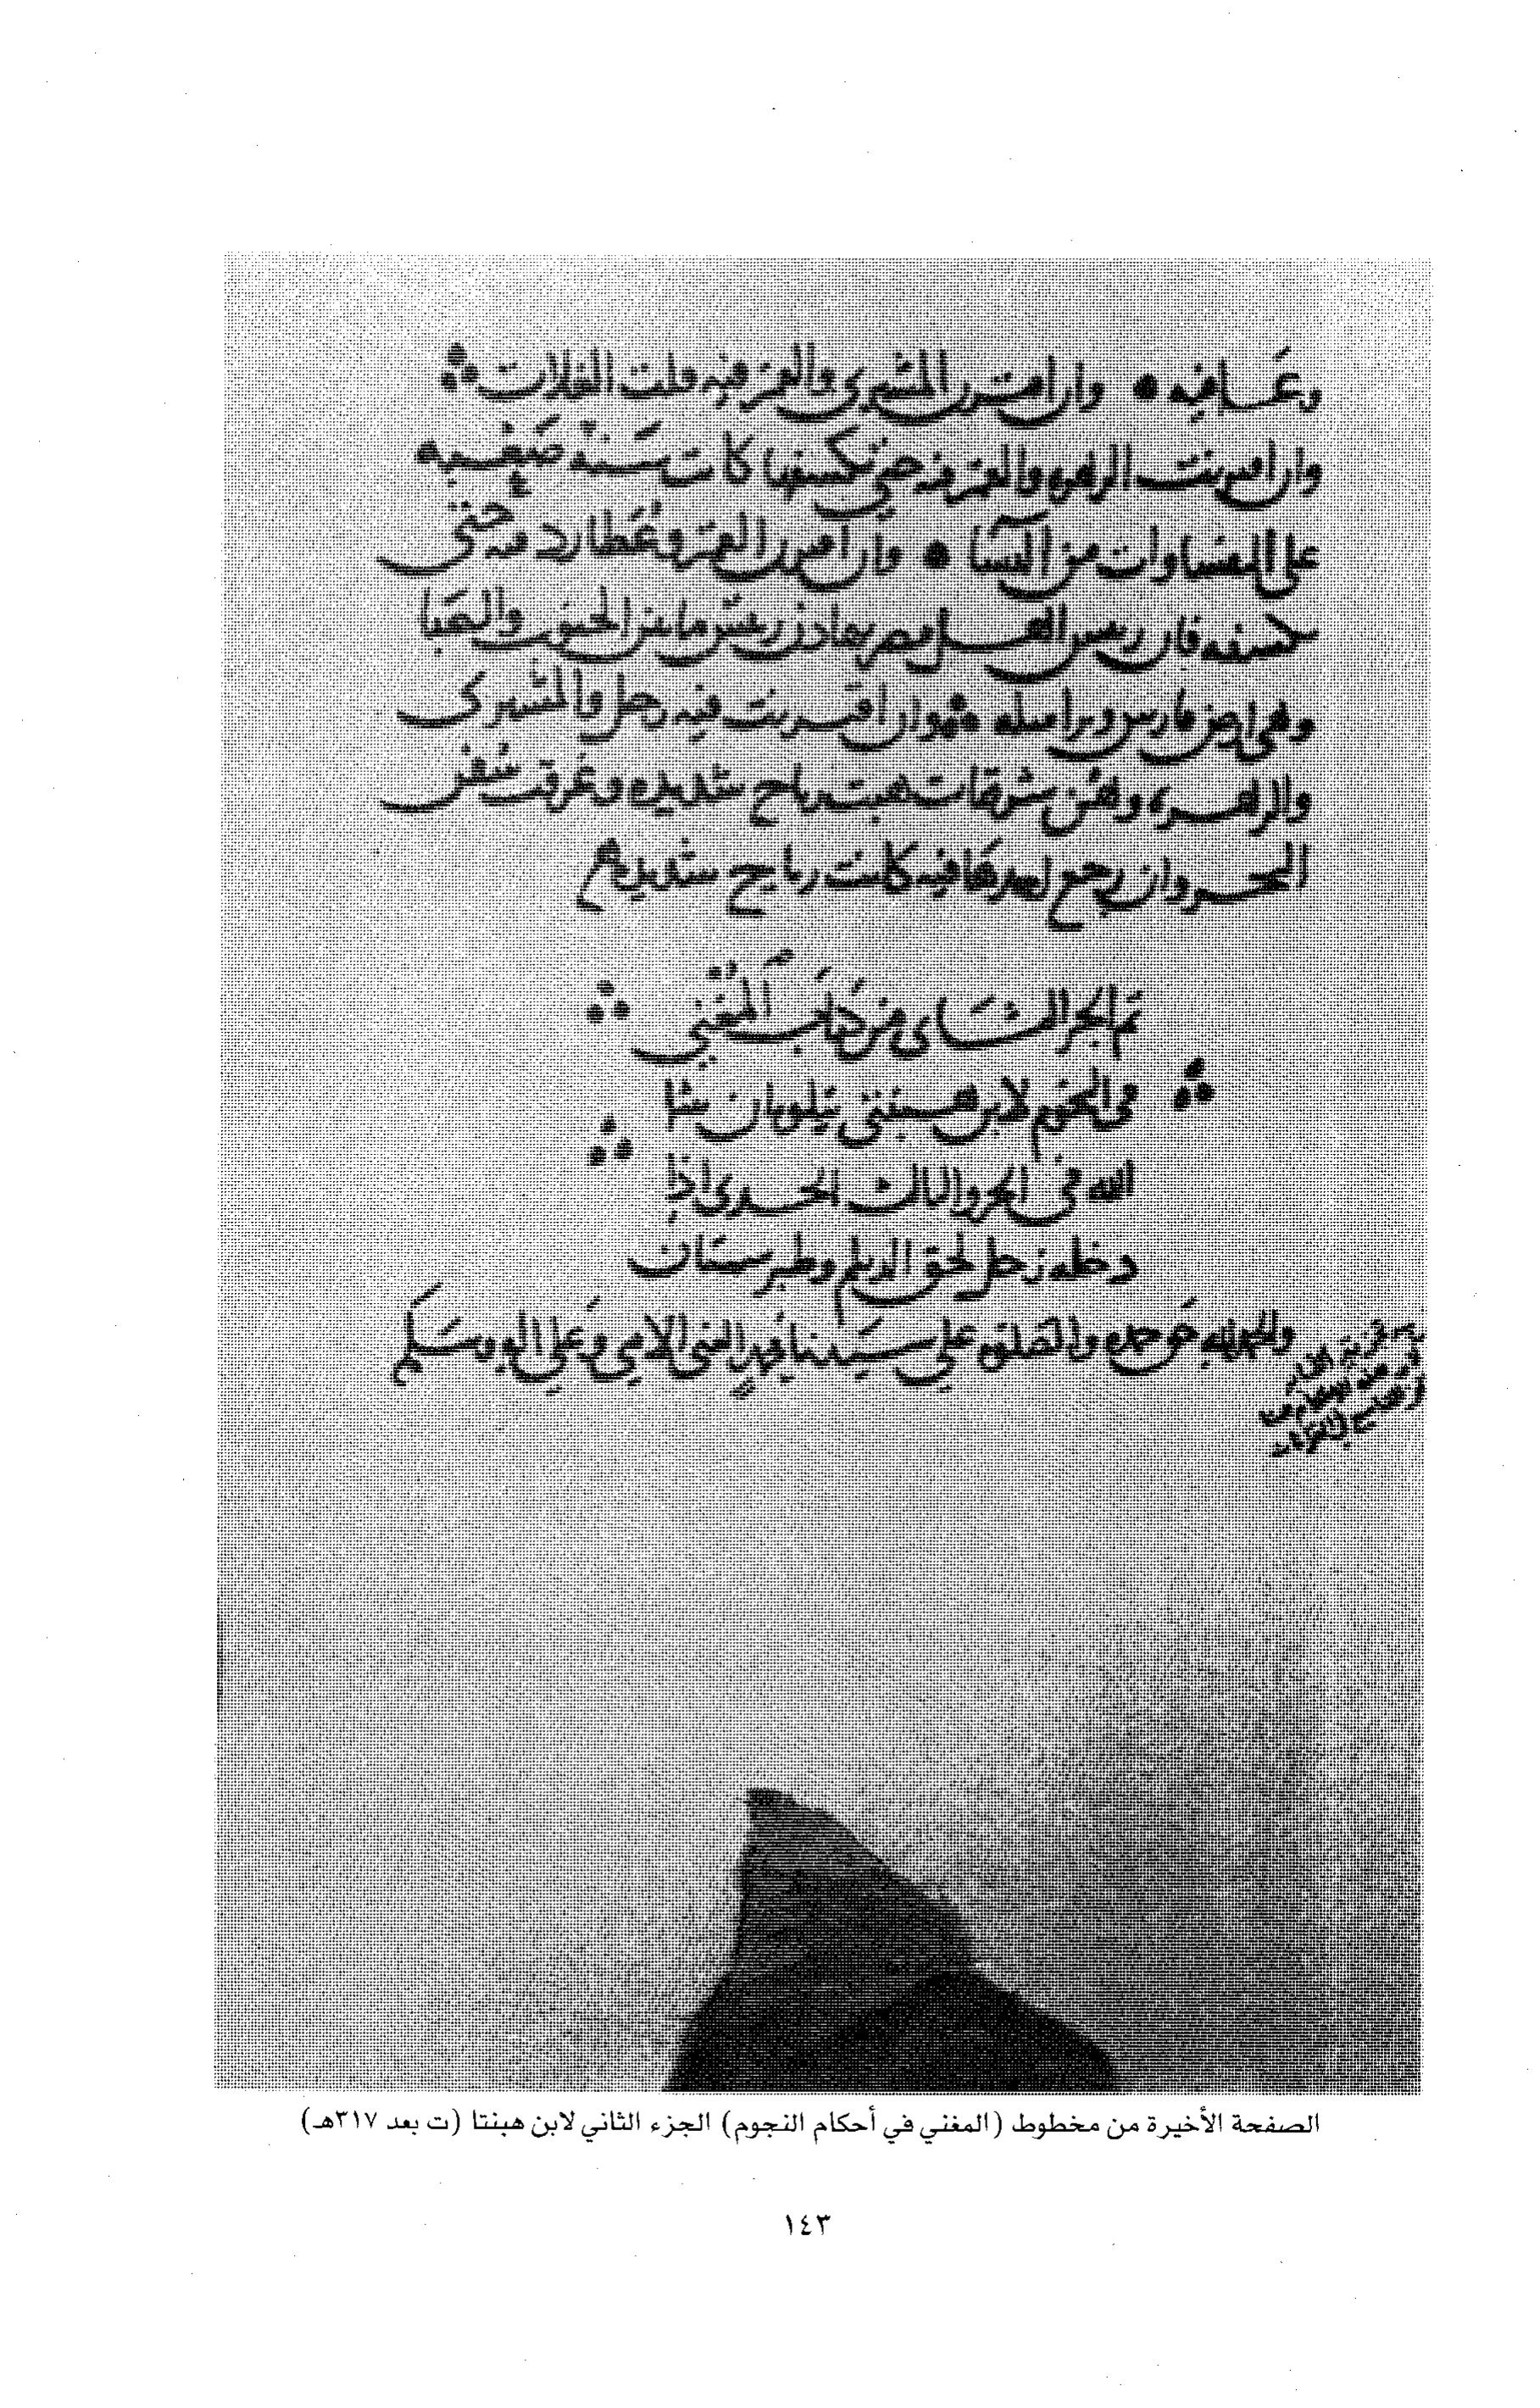 وعافيه • وان اقترن المشترى والقمر فيه قلت الغلات
وان اقترنت الزهره والقمر فيه حتى تكسفها كانت سنة صعبه
على المغنياوات من النسا • وان اقترن القمر وعطارد فيه حتى
يكسفه فان رييس
وهى ارض فارس وان اقترنت فيه زحل والمشترى
والزهره وهن مشرقات هبت رياح شديده وغرقت سفن
البحر وان رجع احدها فيه كانت رياح شديدة
تم الجز الثانى من كتاب المغني
فى النجوم لابن هبنتى يتلوه ان شا
الله فى الجزو الثالث الجدى اذا
دخله زحل لحق الديلم وطبرستان
والحمد لله حق حمده والصلوة على سيدنا محمد النبى الامي وعلى اله وسلم
الصفحة الأخيرة من مخطوط (المغني في أحكام النجوم) الجزء الثاني لابن هبنتا (ت بعد ٣١٧هـ)
١٤٣